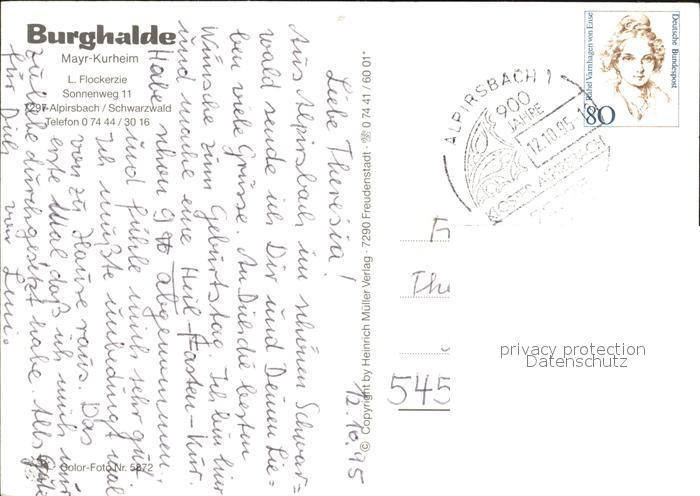 Burghalde
Mayr-Kurheim
L. Flockerzie
Sonnenweg 11
7297 Alpirsbach / Schwarzwald
Telefon 0 74 44 / 30 16
12.10.95
Liebe Theresia!
Aus Alpirsbach im schönen Schwarz=
wald sende ich Dir und Deinen Lie=
ben viele Grüsse. An Dich die besten
Wünsche zum Geburtstag. Ich bin hier
und mache eine Heil-Fasten-Kur.
Habe schon 9 ℔ abgenommen.
und fühle mich sehr gut.
Ich mußte unbedingt mal
von zu Hause raus. Das
erste Mal daß ich mich mir
zuliebe durchgesetzt habe. Alles Gute
für Dich von Leni.
Color-Foto Nr. 5872
© Copyright by Heinrich Müller Verlag · 7290 Freudenstadt · ☏ 0 74 41 / 60 01*
ALPIRSBACH 1
900
JAHRE
12.10.95-1
KLOSTER ALPIRSBACH
Rahel Varnhagen von Ense
Deutsche Bundespost
80
F
The
545
privacy protection
Datenschutz